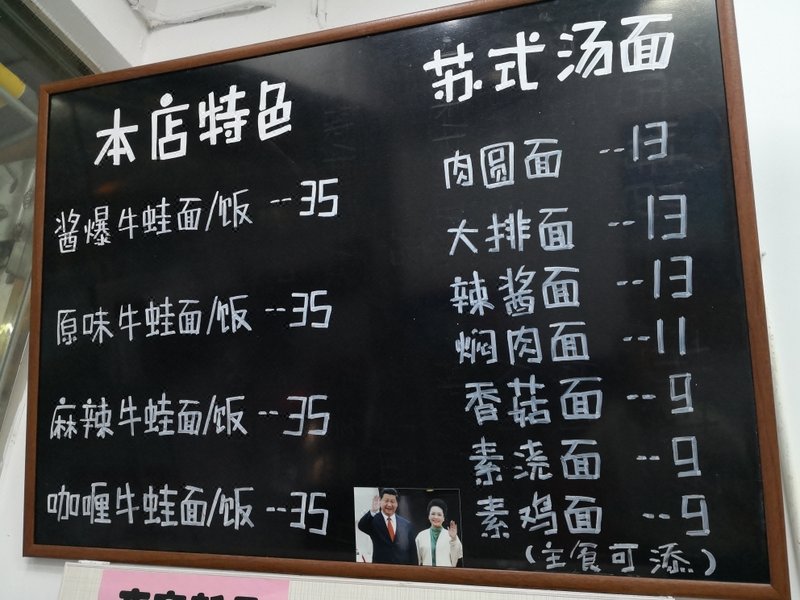 本店特色
酱爆牛蛙面/饭 --35
原味牛蛙面/饭 --35
麻辣牛蛙面/饭 --35
咖喱牛蛙面/饭 --35
苏式汤面
肉圆面 --13
大排面 --13
辣酱面 --13
焖肉面 --11
香菇面 --9
素浇面 --9
素鸡面 --9
(主食可添)